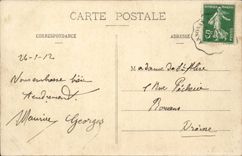 CARTE POSTALE
CORRESPONDANCE
ADRESSE
26-1-12
Vous embrasse bien
tendrement
Maurice Georges
Madame
1 Rue Pêcherie
Romans
Drôme